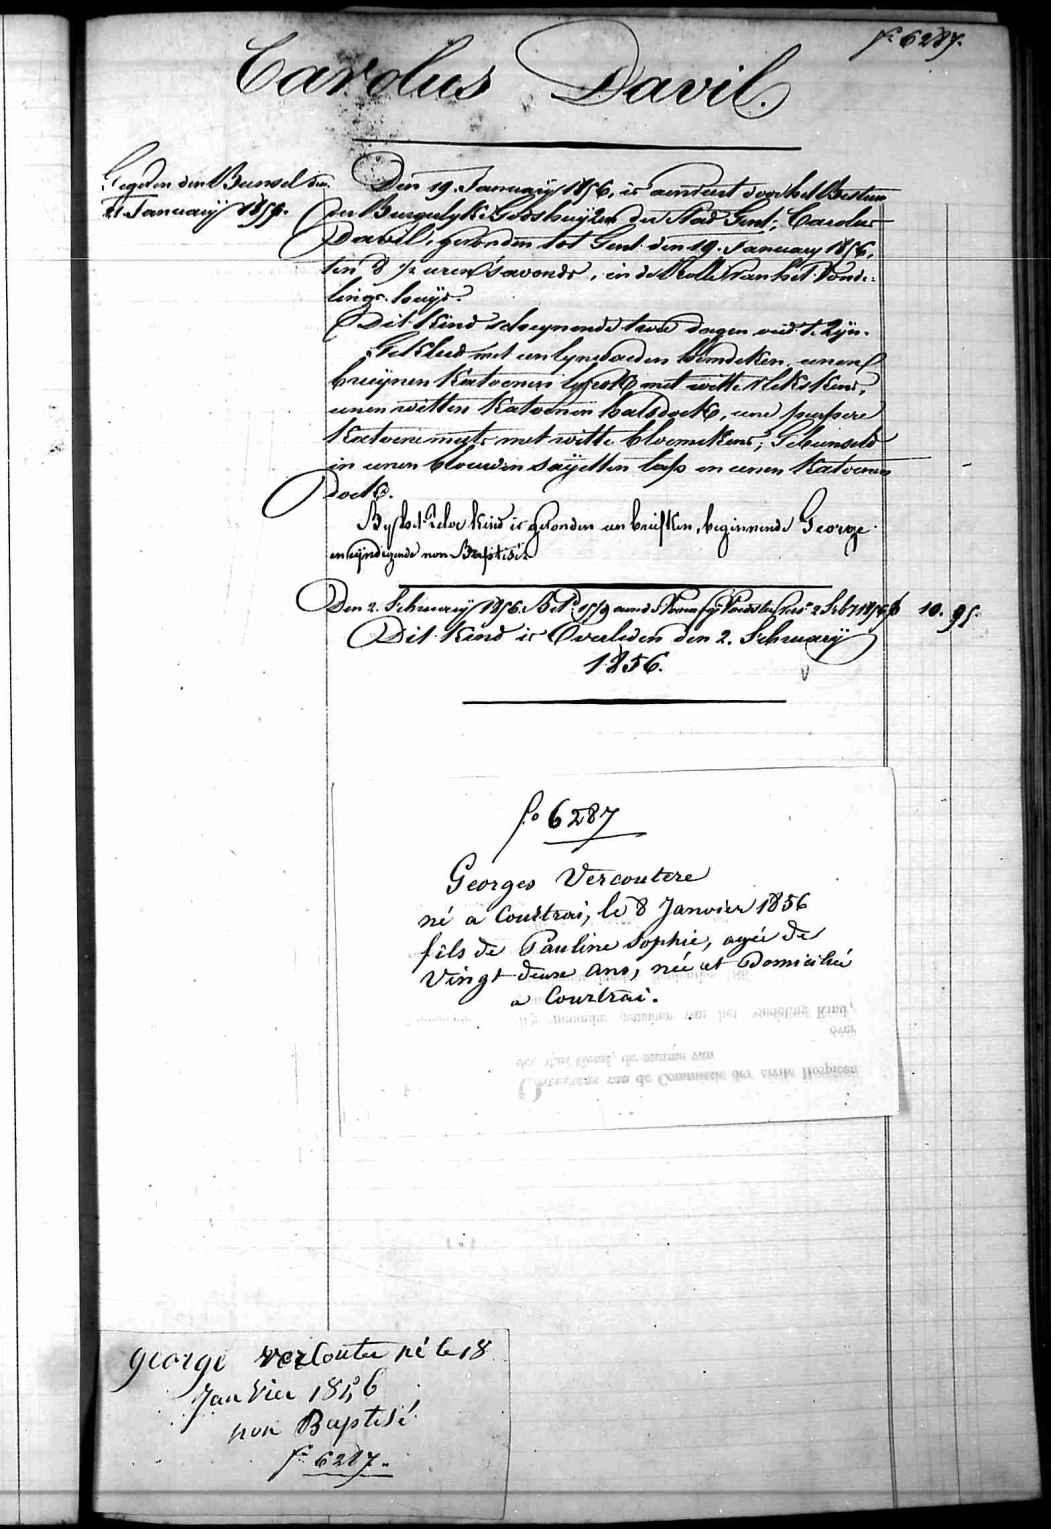 fo 6287.
Carolus Davil.
Gegeven den Bunsel den
21 January 1856.
Den 19 January 1856, is aenveert door het Bestuer
der Burgerlyke Godshuyzen der Stad Gent, Carolus
Davil, gevonden tot Gent den 19 January 1856,
ten 8 ½ uren 's avonds, in de Rolle van het Vonde-
lings-huys.
Dit kind scheynende twee dagen oud te zyn.
Gekleed met een lynwaeden hemdeken, eenen
bruynen katoenen met witte vlekskens,
eenen witten katoenen halsdoek, eene purpere
katoene muts met witte bloemekens; Gebunseld
in eenen blauwen sayetten lap en eenen katoenen
doek.
By het zelve kind is gevonden een briefken, beginnende George
en eyndigende non Baptisé
Den 2. February 1856. 1779 2 10. 95.
Dit kind is Overleden den 2. February
1856.
fo 6287
Georges Vercoutere
né a Courtrai, le 8 Janvier 1856
fils de Pauline Sophie, agée de
Vingt deux ans, née et Domiciliée
a Courtrai.
bij genomen van het vondeling Kind,
over
der stad Gend, de somme van
Ontvangen van de Commissie der civile Hospicen
george vercoutre né le 18
Janvier 1856
non Baptisé
fo 6287.